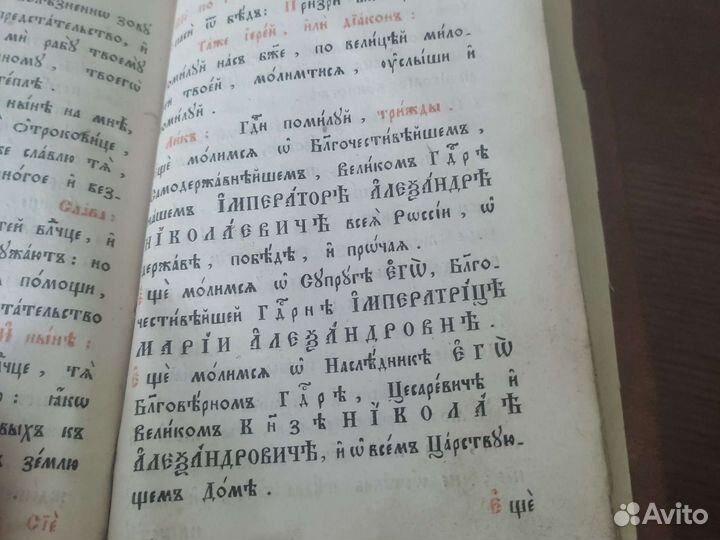 болѣзненнѡ зовꙋ
предстательство, и҆
ми рабꙋ твоемꙋ
ному, твоегѡ
теплѣ.
нынѣ на мнѣ,
Ѻ҆троковице,
же славлю тѧ̀,
многое и҆ без-
Сла́ва:
тей бл҃чце, и҆
ужаютъ: но
помощи,
тательство
И҆ ны́нѣ:
чце, тѧ̀
ю: ꙗ҆́кѡ
выхъ къ
ѣ землю
Сїѐ
ѿ бѣдъ: Призри
Таже і҆ере́й, и҆лѝ дїа́конъ:
Помилуй насъ бж҃е, по велицѣй мило-
твоей, молимтисѧ, ᲂу҆слыши и҆
помилуй.
Ли́къ: Гдⷭ҇и помилуй, трижды.
Е҆щѐ молимсѧ ѡ҆ Бл҃гочестивѣйшемъ,
Самодержавнѣйшемъ, Великомъ Гдⷭ҇рѣ
нашемъ І҆МПЕРА́ТОРѢ А҆ЛЕѮА́НДРѢ
НІКОЛА́ЕВИЧѢ всеѧ̀ Рѡссїи, ѡ҆
державѣ, побѣдѣ, и҆ прѡчаѧ.
Е҆щѐ молимсѧ ѡ҆ Сꙋпрꙋгѣ Е҆ГѠ̀, Бл҃го-
честивѣйшей Гдⷭ҇рнѣ І҆МПЕРАТРИ́ЦѢ
МАРІ́И А҆ЛЕѮА́НДРОВНѢ.
Е҆щѐ молимсѧ ѡ҆ Наслѣ́дникѣ Е҆ГѠ̀
Бл҃говѣрномъ Гдⷭ҇рѣ, Цесаревичѣ и҆
Великомъ КН҃ЗѢ НІКОЛА́Ѣ
А҆ЛЕѮА́НДРОВИЧѢ, и҆ ѡ҆ всемъ Царствꙋю-
щемъ До́мѣ.
Е҆щѐ
Avito